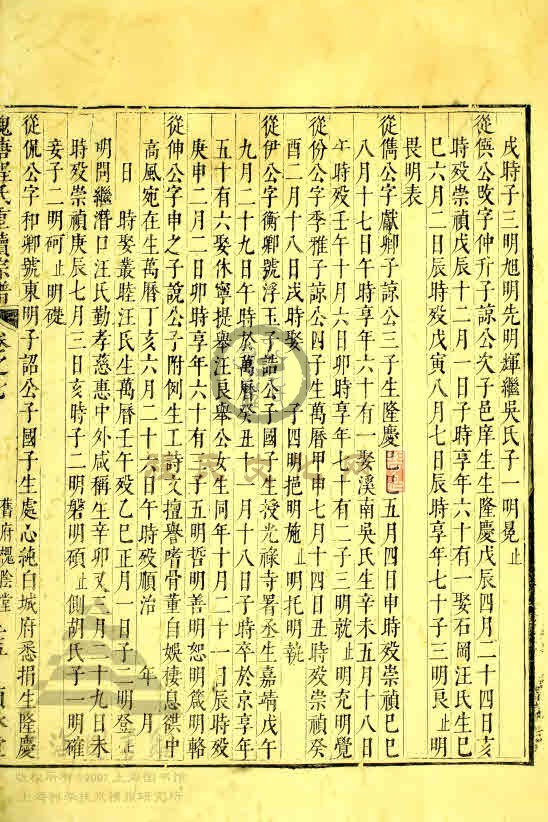 戌時子三明旭明先明輝繼吳氏子一明晃止
從僎公攺字仲升子諒公次子邑庠生生隆慶戊辰四月二十四日亥
時歿崇禎戊辰十二月十一日子時享年六十有一娶石岡汪氏生巳
巳六月二日辰時歿戊寅八月七日辰時享年七十子三明良止明
畏明表
從儁公字獻卿子諒公三子生隆慶己巳五月四日申時歿崇禎己巳
八月十七日午時享年六十有一娶溪南吳氏生辛未五月十八日
午時歿壬午十月六日卯時享年七十有二子三明就止明充明覺
從份公字季雅子諒公四子生萬曆甲申七月十四日丑時歿崇禎癸
酉二月十八日戌時娶 子四明挹明施止明托明
從伊公字衡卿號浮玉子誥公子國子生授光祿寺署丞生嘉靖戊午
九月二十九日午時於萬曆癸丑十一月十八日子時卒於京享年
五十有六娶休寧提舉汪良舉公女生同年十月二十一日辰時歿
庚申二月二日卯時享年六十有三子五明哲明善明恕明箴明輅
從伸公字申之子說公子附例生工詩文擅譽嗜骨董自娛棲息獄中
高風宛在生萬曆丁亥六月二十六日午時歿順治 年 月
日 時娶叢睦汪氏生萬曆壬午歿乙巳正月一日子二明登止
明開繼潛口汪氏勤孝慈惠中外咸稱生辛卯又三月二十九日未
時歿崇禎庚辰七月三日亥時子二明磐明碩止側胡氏子一明確
妾子二明砢止明礎
從侃公字和卿號東明子詔公子國子生處心純白城府悉捐生隆慶
槐塘程氏重續宗譜 卷之九 舊府槐陰堂
版权所有©2007上海图书馆
上海科学技术情报研究所